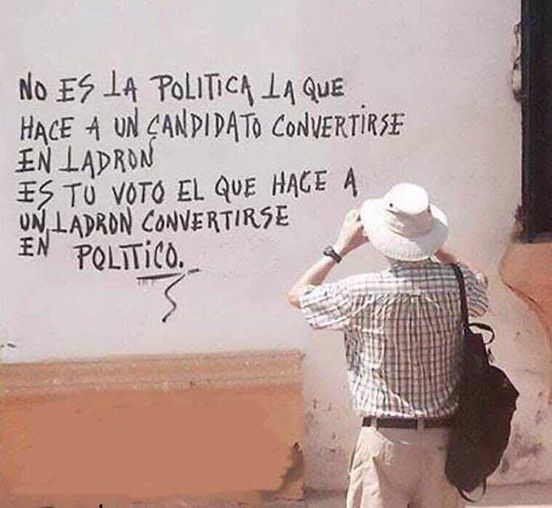 NO ES LA POLITICA LA QUE
HACE A UN CANDIDATO CONVERTIRSE
EN LADRON
ES TU VOTO EL QUE HACE A
UN LADRON CONVERTIRSE
EN POLITICO.